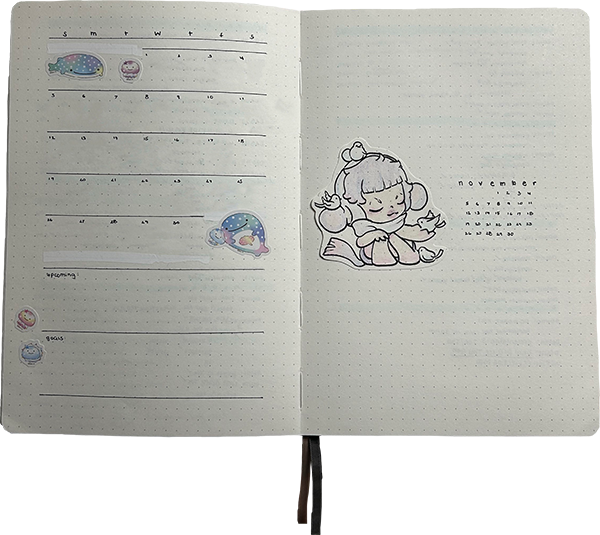 S M T W T F S
1 2 3 4
5 6 7 8 9 10 11
12 13 14 15 16 17 18
19 20 21 22 23 24 25
26 27 28 29 30
upcoming:
goals:
november
1 2 3 4
5 6 7 8 9 10 11
12 13 14 15 16 17 18
19 20 21 22 23 24 25
26 27 28 29 30